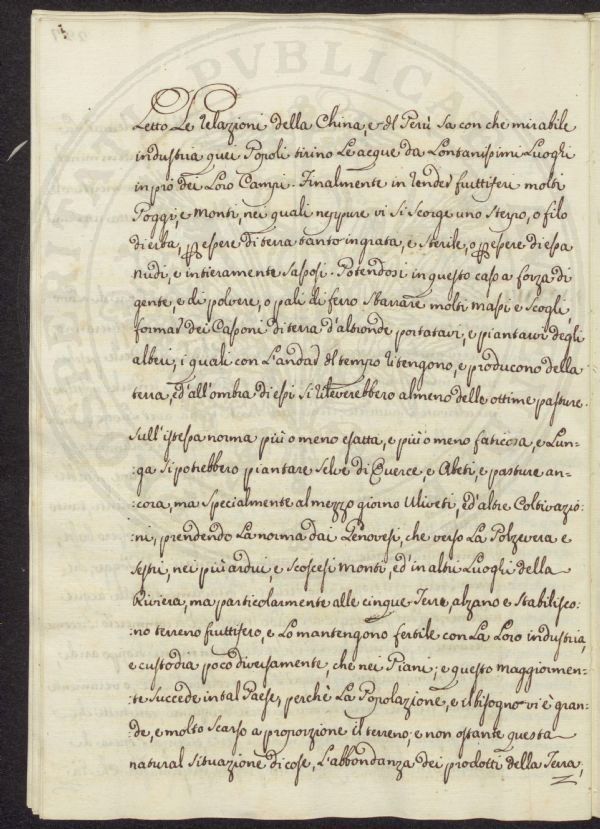 Letto Le Relazioni della China, e dl Perù sa con che mirabile
industria quei Popoli tirino Le acque da Lontanissimi Luoghi
in prò dei Loro Campi. Finalmente in render fruttiferi molti
Poggi, e Monti, nei quali neppure vi si scorge uno sterpo, o filo
di erba, per essere di terra tanto ingrata, e sterile, o per essere di essa
nudi, e intieramente sassosi. Potendosi in questo caso a forza di
gente, e di polvere, o pali di ferro sbarrare molti massi e scogli,
formar dei Cassoni di terra d'altronde portatavi, e piantarvi degli
alberi, i quali con L'andar dl tempo ritengono, e producono della
terra, ed'all'ombra di essi si riceverebbero almeno delle ottime pasture.
Sull'istessa norma più o meno esatta, e più o meno faticosa, e Lun-
ga si potrebbero piantare selve di Querce, e Abeti, e pasture an-
:cora, ma specialmente al mezzo giorno Uliveti, ed'altre Coltivazio-
:ni, prendendo La norma dai Genovesi, che verso La Polzevera e
Sestri, nei più ardui, e scoscesi monti, ed'in altri Luoghi della
Riviera, ma particolarmente alle cinque Terre, alzano e stabilisco-
:no terreno fruttifero, e Lo mantengono fertile con La Loro industria,
e custodia poco diversamente, che nei Piani; e questo maggiormen-
:te succede in tal Paese, perchè La Popolazione, e il bisogno vi è gran-
:de, e molto scarso a proporzione il terreno; e non ostante questa
natural situazione di cose, L'abbondanza dei prodotti della Terra,